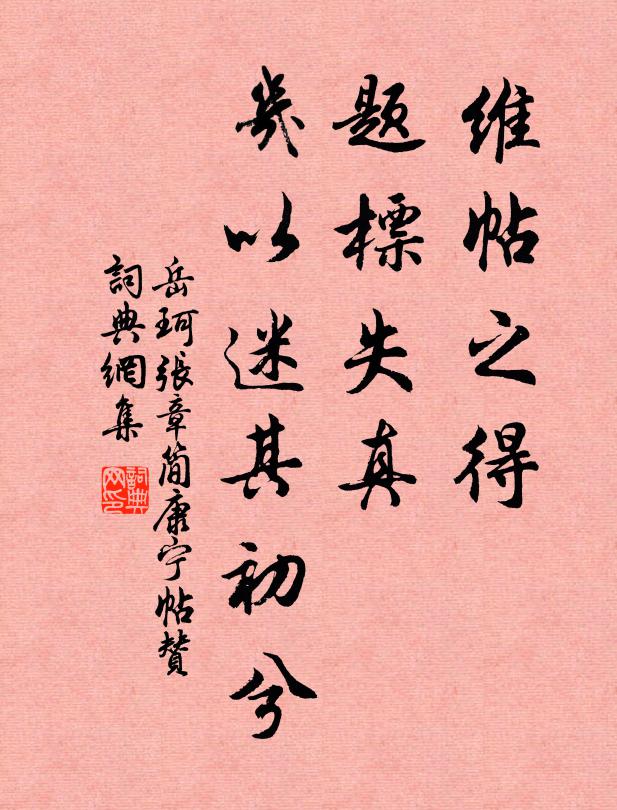 維帖之得
題標失真
幾以迷其初兮
岳珂張章简康宁帖贊
詞典網集
詞典网印